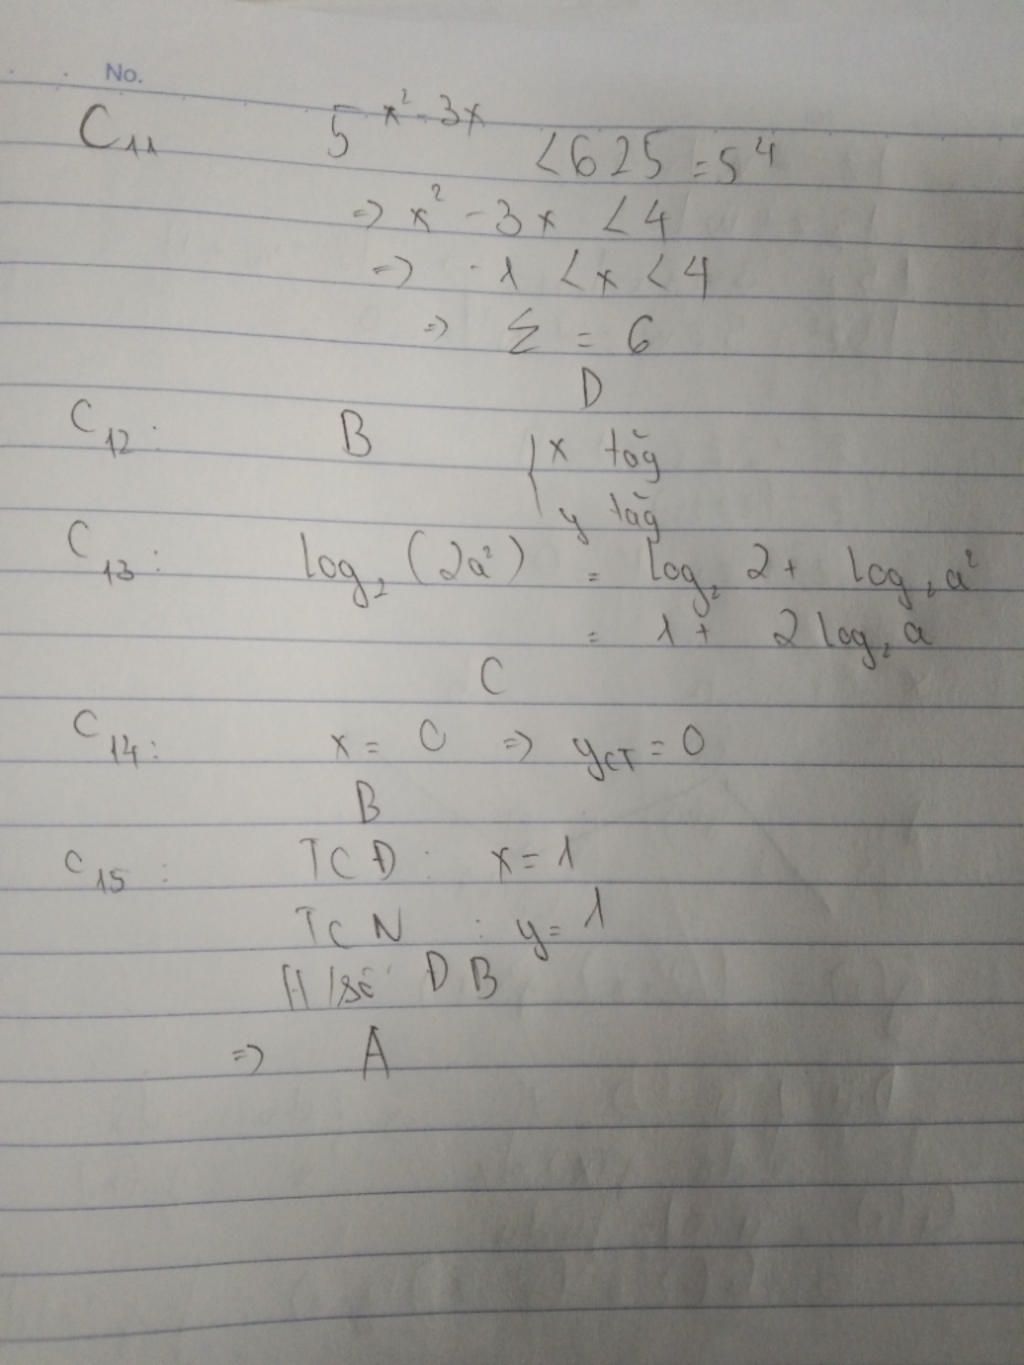 No.
C₁₁ 5^(x²-3x) < 625 = 5⁴
=> x² - 3x < 4
=> -1 < x < 4
=> Σ = 6
D
C₁₂: B { x tăg
y tăg
C₁₃: log₂ (2a²) = log₂ 2 + log₂ a²
= 1 + 2 log₂ a
C
C₁₄: x = 0 => y_CT = 0
B
C₁₅: TCĐ: x = 1
TCN : y = 1
H/số ĐB
=> A